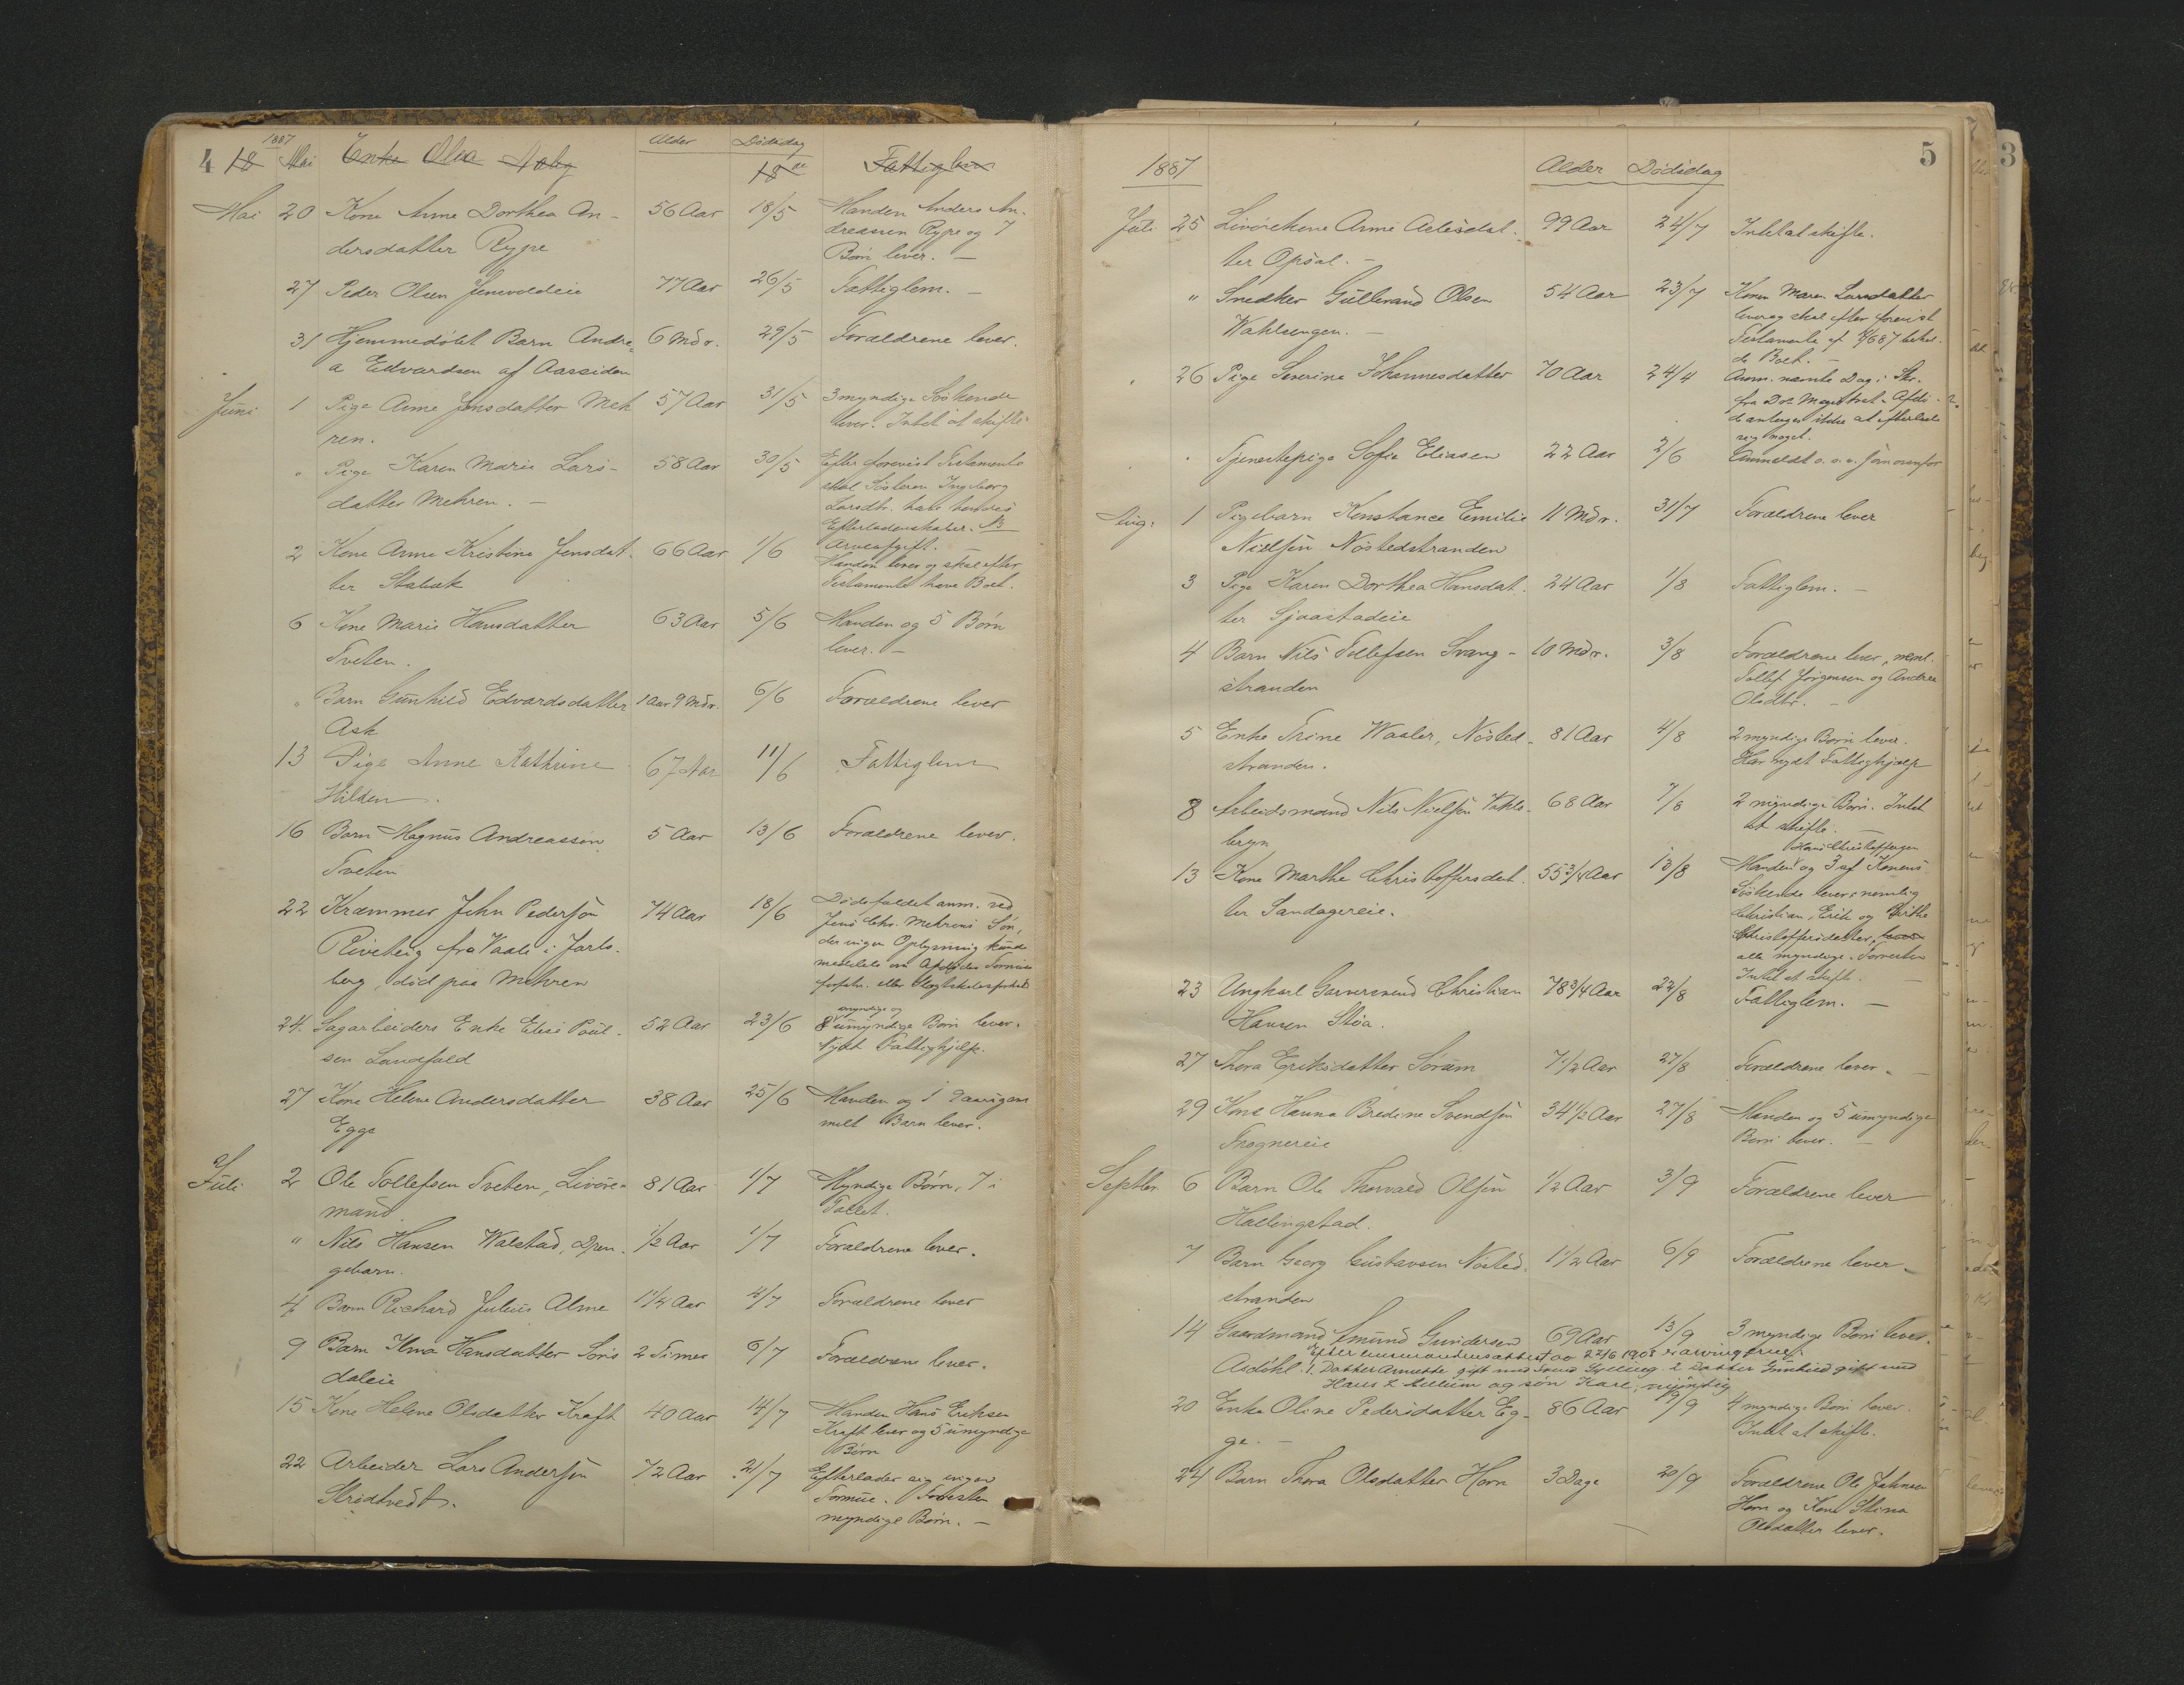 4 18 1887 Mai Enke Olea Aaby Alder Dødsdag 18de Fattiglem
Mai 20 Kone Anne Dorthea An- 56 Aar 18/5 Manden Anders An-
dersdatter Rype dreassen Rype og 7
Børn lever. —
27 Peder Olsen Jensvoldeie 77 Aar 26/5 Fattiglem. —
31 Hjemmedøbt Barn Andre- 6 Mdr. 29/5 Forældrene lever.
a Edvardsen af Aassiden
Juni 1 Pige Anne Jensdatter Meh 57 Aar 31/5 3 myndige Søskende
ren. lever. Intet at skifte
" Pige Karen Marie Lars- 58 Aar 30/5 Efter forevist Testamente
datter Mehren. — skal Søsteren Ingeborg
Larsdtr. have hendes
Efterladenskaber. NB
Arveafgift.
2 Kone Anne Kristine Jensdat- 66 Aar 1/6 Manden lever og skal efter
ter Stabæk Testamente have Boet.
6 Kone Marie Hansdatter 63 Aar 5/6 Manden og 5 Børn
Tveten. lever. —
" Barn Gunhild Edvardsdatter 1 Aar 9 Mdr. 6/6 Forældrene lever
Ask
13 Pige Anne Kathrine 67 Aar 11/6 Fattiglem
Hilden.
16 Barn Magnus Andreassen 5 Aar 13/6 Forældrene lever.
Tveten
22 Kræmmer John Pedersen 74 Aar 18/6 Dødsfaldet anm. ved
Riveheig fra Vaale i Jarls- Jens Chr. Mehrens Søn,
berg, død paa Mehren der ingen Oplysning kunde
meddele om Afdødes Formues
forfatn. eller Slegtskabsforhold
24. Sagarbeiders Enke Elise Poul- 52 Aar 23/6 8 myndige og umyndige Børn lever.
sen Landfald Nydt Fattighjelp.
27 Kone Helene Andersdatter 38 Aar 25/6 Manden og 1 9aarigam
Egge melt Barn lever.
Juli 2 Ole Tollefsen Tveten, Livøre- 81 Aar 1/7 Myndige Børn, 7 i
mand Tallet.
" Nils Hansen Walstad, Dren- 1/2 Aar 1/7 Forældrene lever.
gebarn.
4 Barn Richard Julius Alme 1 1/4 Aar 2/7 Forældrene lever
9 Barn Alma Hansdatter Soris 2 Timer 6/7 Forældrene lever.
daleie
15 Kone Helene Olsdatter Kraft 40 Aar 14/7 Manden Hans Eriksen
Kraft lever og 5 umyndige
Børn
22 Arbeider Lars Andersen 72 Aar 21/7 Efterlader sig ingen
Stridtvedt. Formue. Forresten
myndige Børn. —
5
1887 Alder Dødsdag
Juli 25 Livørekone Anne Aslesdat- 99 Aar 24/7 Intet at skifte.
ter Opsal. —
" Snedker Gulbrand Olsen 54 Aar 23/7 Konen Maren Larsdatter
Wahlsengen. — lever og skal efter forevist
Testamente af
de Boet. —
" 26 Pige Severine Johannesdatter 70 Aar 24/4 Anm. nævnte Dag i Skr.
fra Dr. Magistrat. Afdø-
de antages ikke at efterlade
sig noget.
" Tjenestepige Sofie Eliasen 22 Aar 2/6 Anmeldt o. s. v. som ovenfor
Aug. 1 Pigebarn Konstance Emilie 11 Mdr. 31/7 Forældrene lever
Nielsen Nøstedstranden
3 Pige Karen Dorthea Hansdat- 24 Aar 1/8 Fattiglem. —
ter Sjaastadeie
4 Barn Nils Tollefsen Svang- 10 Mdr. 3/8 Forældrene lever, neml.
stranden Tollef Jørgensen og Andrea
Olsdtr. —
5 Enke Trine Waaler, Nøsted- 81 Aar 4/8 2 myndige Børn lever.
stranden. Har nydt Fattighjælp
8 Arbeidsmand Nils Nielsen Vahls- 68 Aar 7/8 2 myndige Børn. Intet
bryn at skifte. —
Hans Christoffersen
13 Kone Marthe Christoffersdat- 55 3/4 Aar 10/8 Manden og 3 af Konens
ter Sandagereie. Søskende lever, nemlig
Christian, Erik og Birthe
Christoffersdatter,
alle myndige. Forresten
Intet at skifte. —
23 Ungkarl Garversvend Christian 78 3/4 Aar 22/8 Fattiglem. —
Hansen Støa.
27 Thora Eriksdatter Sørum 7 1/2 Aar 27/8 Forældrene lever. —
29 Kone Hanna Bredine Svendsen 34 1/2 Aar 27/8 Manden og 5 umyndige
Frognereie Børn lever. —
Septbr. 6 Barn Ole Thorvald Olsen 1/2 Aar 3/9 Forældrene lever
Hallingstad.
7 Barn Georg Gustavsen Nøsted- 1 1/2 Aar 6/9 Forældrene lever.
stranden
14 Gaardmand Amund Gundersen 69 Aar 13/9 3 myndige Børn lever.
Efter lensmandens attest av 22/6 1908 er arvingerne:
Asdøhl. 1. Datter Annette gift med Sylling. 2 Datter Gunhild gift med
Hans L Lillum og søn Karl, myndig
20 Enke Oline Pedersdatter Eg- 86 Aar 19/9 4 myndige Børn lever.
ge. — Intet at skifte.
24 Barn Thora Olsdatter Horn 3 Dage 20/9 Forældrene Ole Johnsen
Horn og Kone Stina
Olsdatter lever.
3